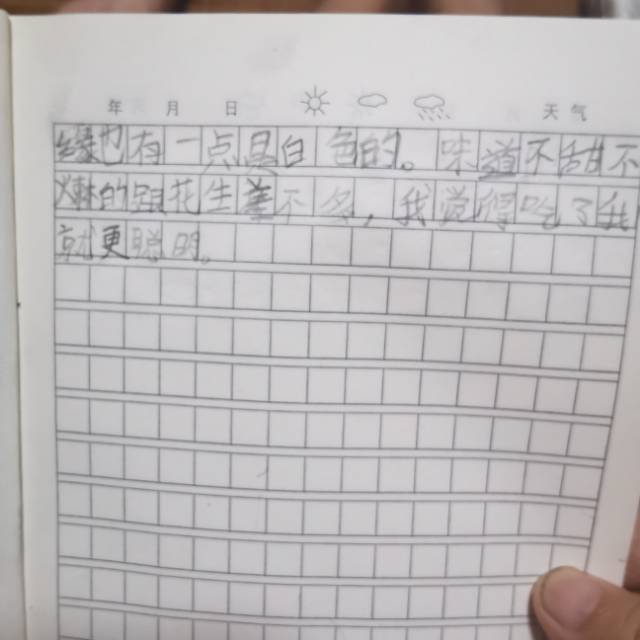 年 月 日 天气
缘也有一点是白色的。味道不甜不
难的跟花生差不多，我觉得吃了我
就更聪明。